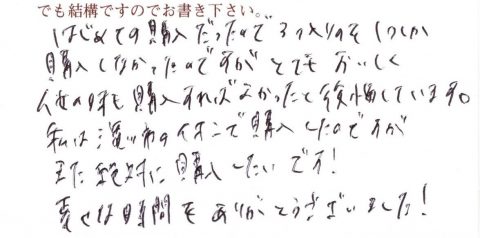 でも結構ですのでお書き下さい。
はじめての購入だったので3つ入りのを1つしか
購入しなかったのですがとてもおいしく
他の味も購入すればよかったと後悔しています。
私は溝の口のイオンで購入したのですが
また絶対に購入したいです!
幸せな時間をありがとうございました!